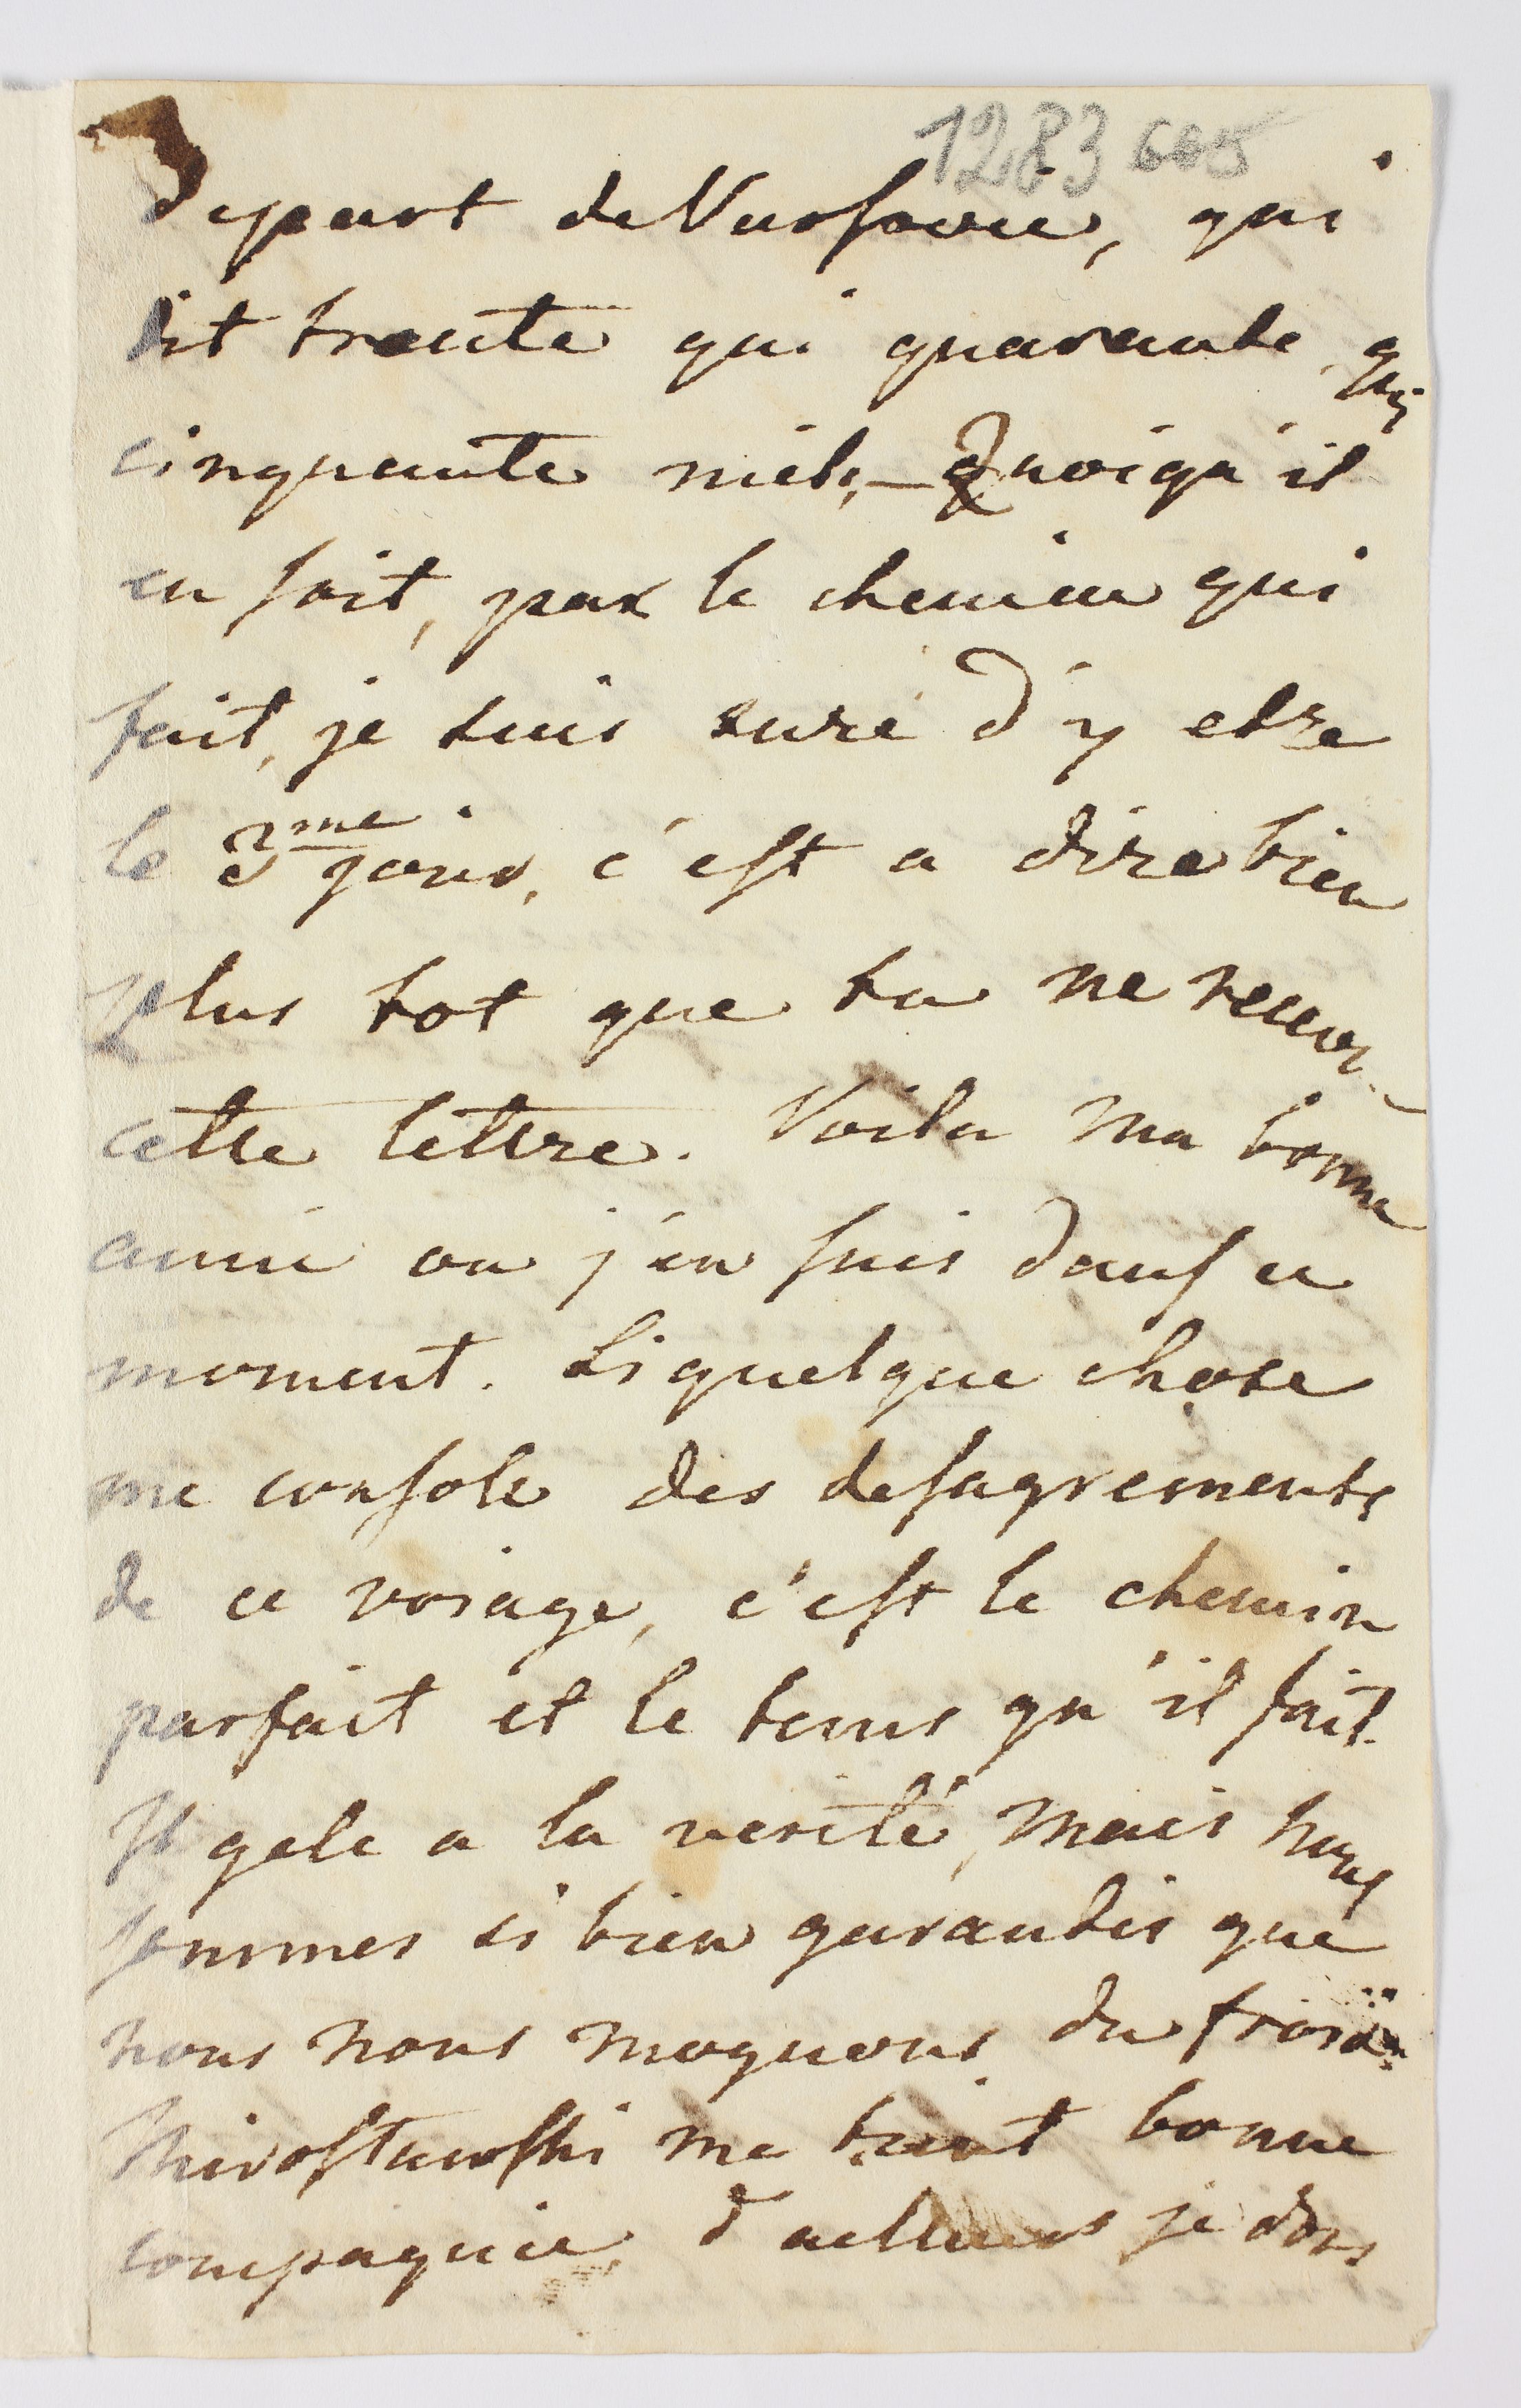 1283 605
depart de Varsovie, qui
dit trente qui quarante, qui
cinquante miels, — Quoiqu'il
en soit, par le chemin qui
fait, je suis sure d'y etre
le 3me jour, c'est a dire bien
plus tot que tu ne recevr
cette lettre. Voila ma bonne
amie ou j'en suis dans ce
moment. Si quelque chose
me console des desagrements
de ce voiage, c'est le chemin
parfait et le tems qu'il fait.
Il gele a la verité, mais nous
sommes si bien garantis que
nous nous moquons du froid.
Miroslawski me tient bonne
compagnie, d'ailleurs je dors